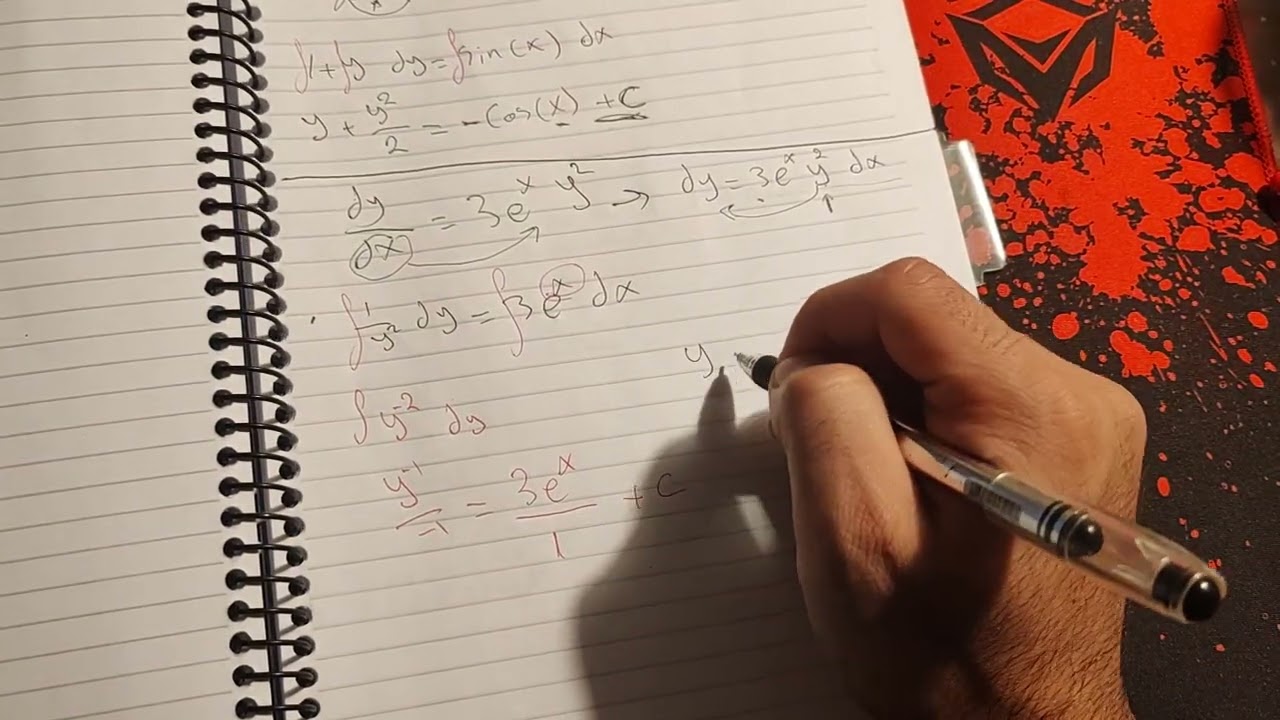 ∫1+∫y dy=∫sin(x) dx
y + y²/2 = -Cos(x) +C
dy/dx = 3eˣ y² → dy=3eˣy² dx
∫1/y² dy = ∫3eˣ dx
y
∫y⁻² dy
y⁻¹/-1 = 3eˣ/1 +C